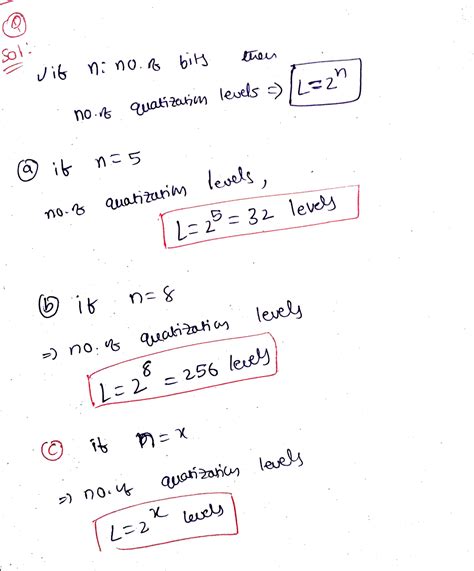 Q
Sol:
√ if n: no. of bits then
no. of quatization levels => L=2^n
(a) if n=5
no. of quatization levels,
L=2^5=32 levels
(b) if n=8
=> no. of quatization levels
L=2^8=256 levels
(c) if n=x
=> no. of quatization levels
L=2^x levels